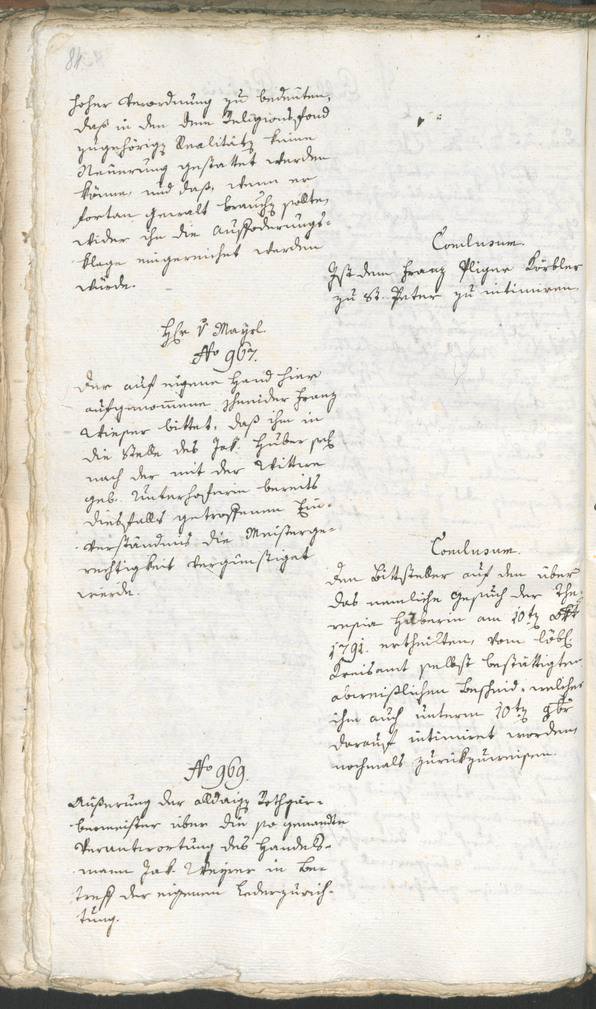 84
hoher Verordnung zu bedeuten,
daß in den dem Religionsfond
zugehörigen Realitäten keine
Neuerung gestattet werden
könne, und daß, wenn er
fortan Gewalt brauchen sollte,
wider ihn die Aufforderungs-
klage eingereichet werden
würde.
Conclusum.
Ist dem Franz Körbler
zu St. Peter zu intimiren.
Hr v Mayrl.
No 967.
Der auf eigene Hand hier
aufgenommene Schneider Franz
Wieser bittet, daß ihm in
die Stelle des Jak. Huber
nach der mit der Wittwe
geb. Unterhoferin bereits
diesfalls getroffenen Ein-
verständniß die Meisterge-
rechtigkeit vergünstiget
werde.
Conclusum.
Den Bittsteller auf den über
das nemliche Gesuch der The-
resia Huberin am 10ten
1791. ertheilten, vom löbl.
Kreisamt selbst bestättigten
abweislichen Bescheid, welcher
ihm auch unterm 10ten 9br
darauf intimiret worden,
nochmals zurückzuweisen.
No 969.
Äußerung der alldaigen Rothgär-
bermeister über die so genannte
Verantwortung des Handels-
mann Jak. in Be-
treff der eigenen Lederzurich-
tung.